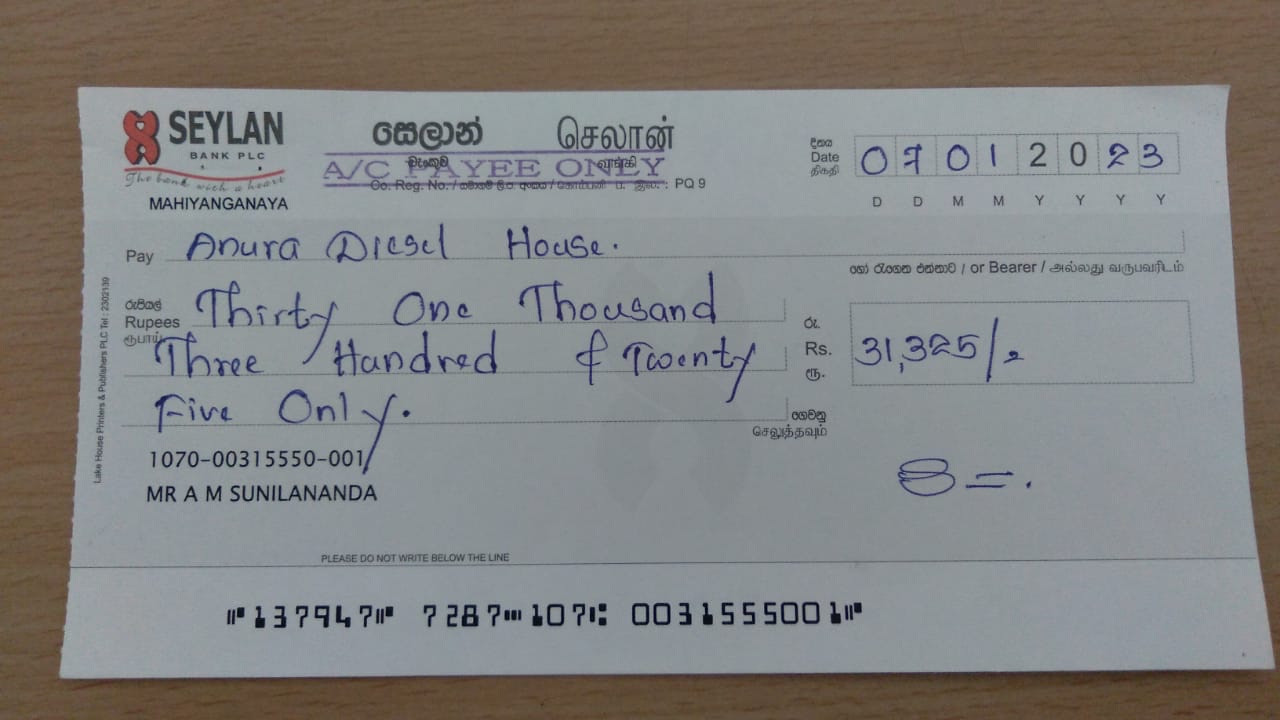 SEYLAN
BANK PLC
The bank with a heart
MAHIYANGANAYA
සෙලාන් செலான்
බැංකුව வங்கி
A/C PAYEE ONLY
Co. Reg. No. / සමාගම් ලි.ප. අංකය / கம்பனி ப. இல. : PQ 9
දිනය
Date
திகதி
0 7 0 1 2 0 2 3
D D M M Y Y Y Y
Pay Anura Diesel House.
හෝ රැගෙන එන්නාට / or Bearer / அல்லது வருபவரிடம்
රුපියල්
Rupees
ரூபாய்
Thirty One Thousand
Three Hundred & Twenty
Five Only.
රු.
Rs.
ரூ.
31,325/=
ගෙවනු
செலுத்தவும்
1070-00315550-001
MR A M SUNILANANDA
PLEASE DO NOT WRITE BELOW THE LINE
⑈137947⑈ 7287⑉107⑆ 0031555001⑈
Lake House Printers & Publishers PLC Tel : 2302139